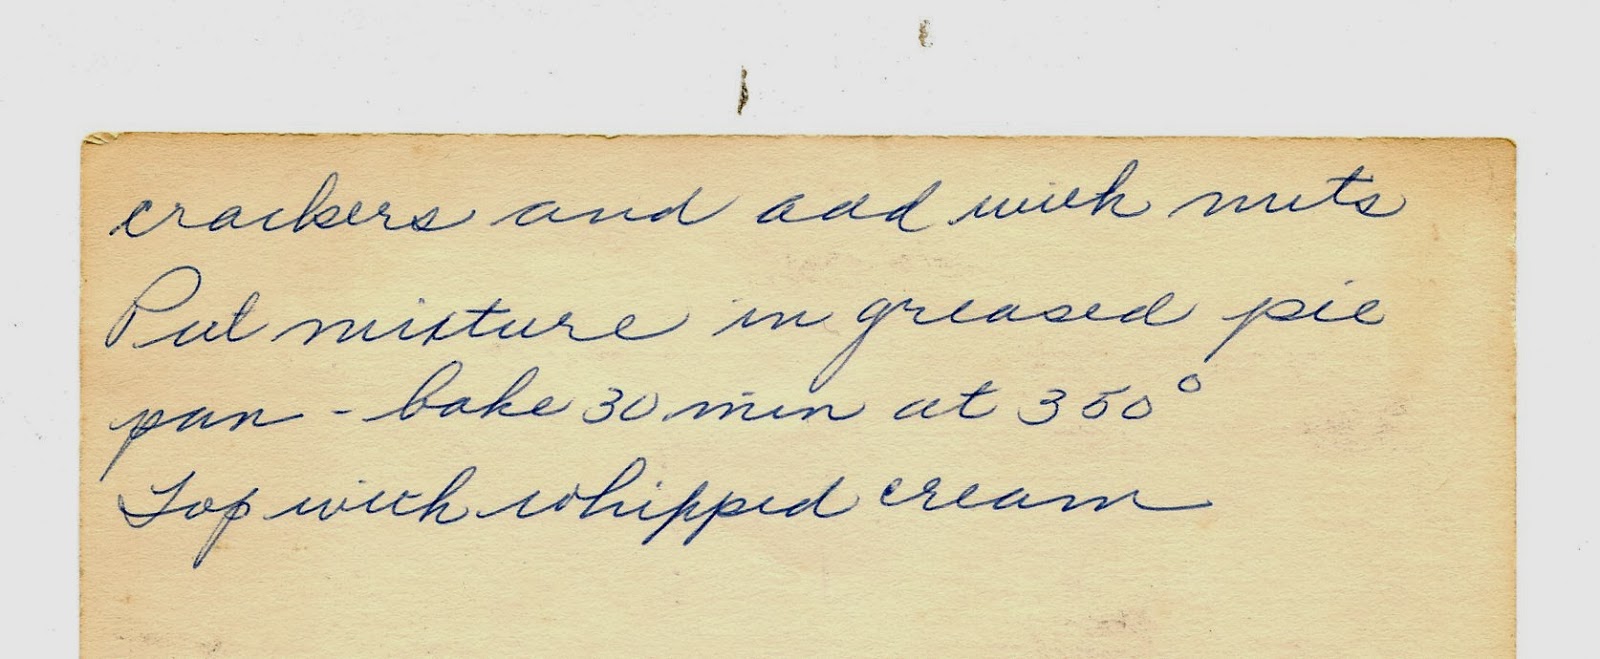 crackers and add with nuts
Put mixture in greased pie
pan - bake 30 min at 350°
Top with whipped cream